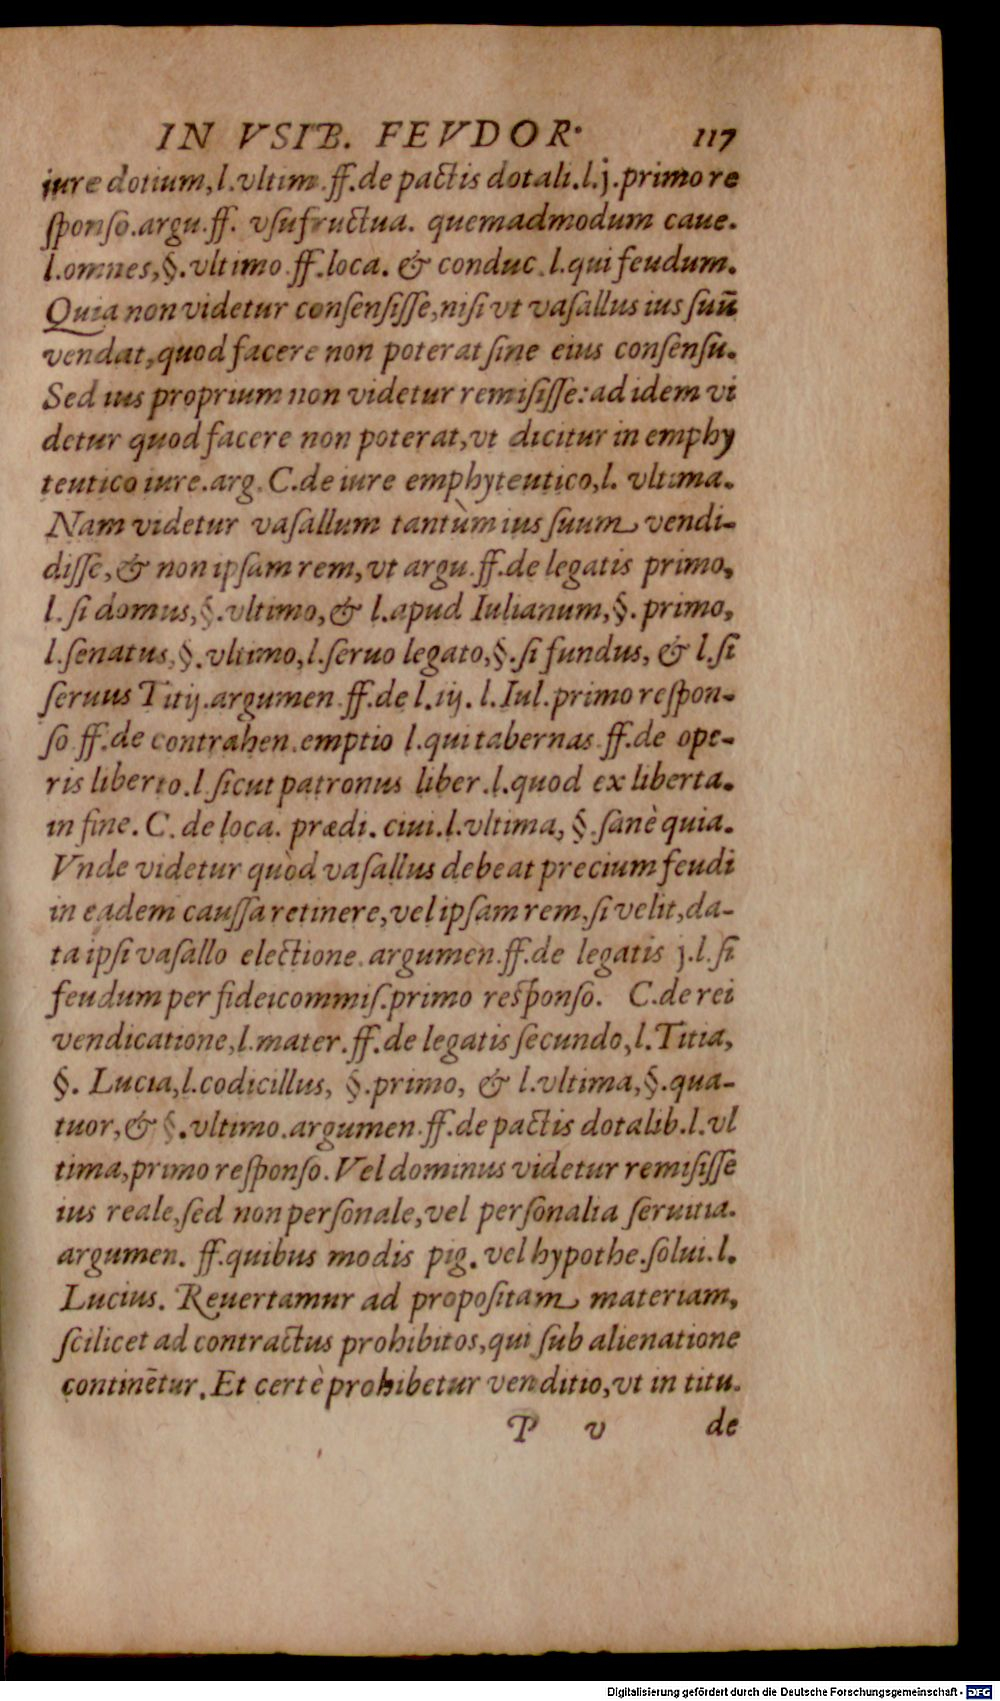 IN VSIB. FEVDOR. 117
iure dotium, l. vltim. ff. de pactis dotali. l. j. primo re
ſponſo. argu. ff. vſufructua. quemadmodum caue.
l. omnes, §. vltimo. ff. loca. & conduc. l. qui feudum.
Quia non videtur conſenſiſſe, niſi vt vaſallus ius ſuū
vendat, quod facere non poterat ſine eius conſenſu.
Sed ius proprium non videtur remiſiſſe: ad idem vi
detur quod facere non poterat, vt dicitur in emphy
teutico iure. arg. C. de iure emphyteutico, l. vltima.
Nam videtur vaſallum tantùm ius ſuum vendi-
diſſe, & non ipſam rem, vt argu. ff. de legatis primo,
l. ſi domus, §. vltimo, & l. apud Iulianum, §. primo,
l. ſenatus, §. vltimo, l. ſeruo legato, §. ſi fundus, & l. ſi
ſeruus Titij. argumen. ff. de l. iij. l. Iul. primo reſpon-
ſo ff. de contrahen. emptio l. qui tabernas. ff. de ope-
ris liberto. l. ſicut patronus liber. l. quod ex liberta.
in fine. C. de loca. prædi. ciui. l. vltima, §. ſanè quia.
Vnde videtur quòd vaſallus debeat precium feudi
in eadem cauſſa retinere, vel ipſam rem, ſi velit, da-
ta ipſi vaſallo electione. argumen. ff. de legatis j. l. ſi
feudum per fideicommiſ. primo reſponſo. C. de rei
vendicatione, l. mater. ff. de legatis ſecundo, l. Titia,
§. Lucia, l. codicillus, §. primo, & l. vltima, §. qua-
tuor, & §. vltimo. argumen. ff. de pactis dotalib. l. vl
tima, primo reſponſo. Vel dominus videtur remiſiſſe
ius reale, ſed non perſonale, vel perſonalia ſeruitia.
argumen. ff. quibus modis pig. vel hypothe. ſolui. l.
Lucius. Reuertamur ad propoſitam materiam,
ſcilicet ad contractus prohibitos, qui ſub alienatione
continētur. Et certè prohibetur venditio, vt in titu.
P v de
Digitalisierung gefördert durch die Deutsche Forschungsgemeinschaft - DFG